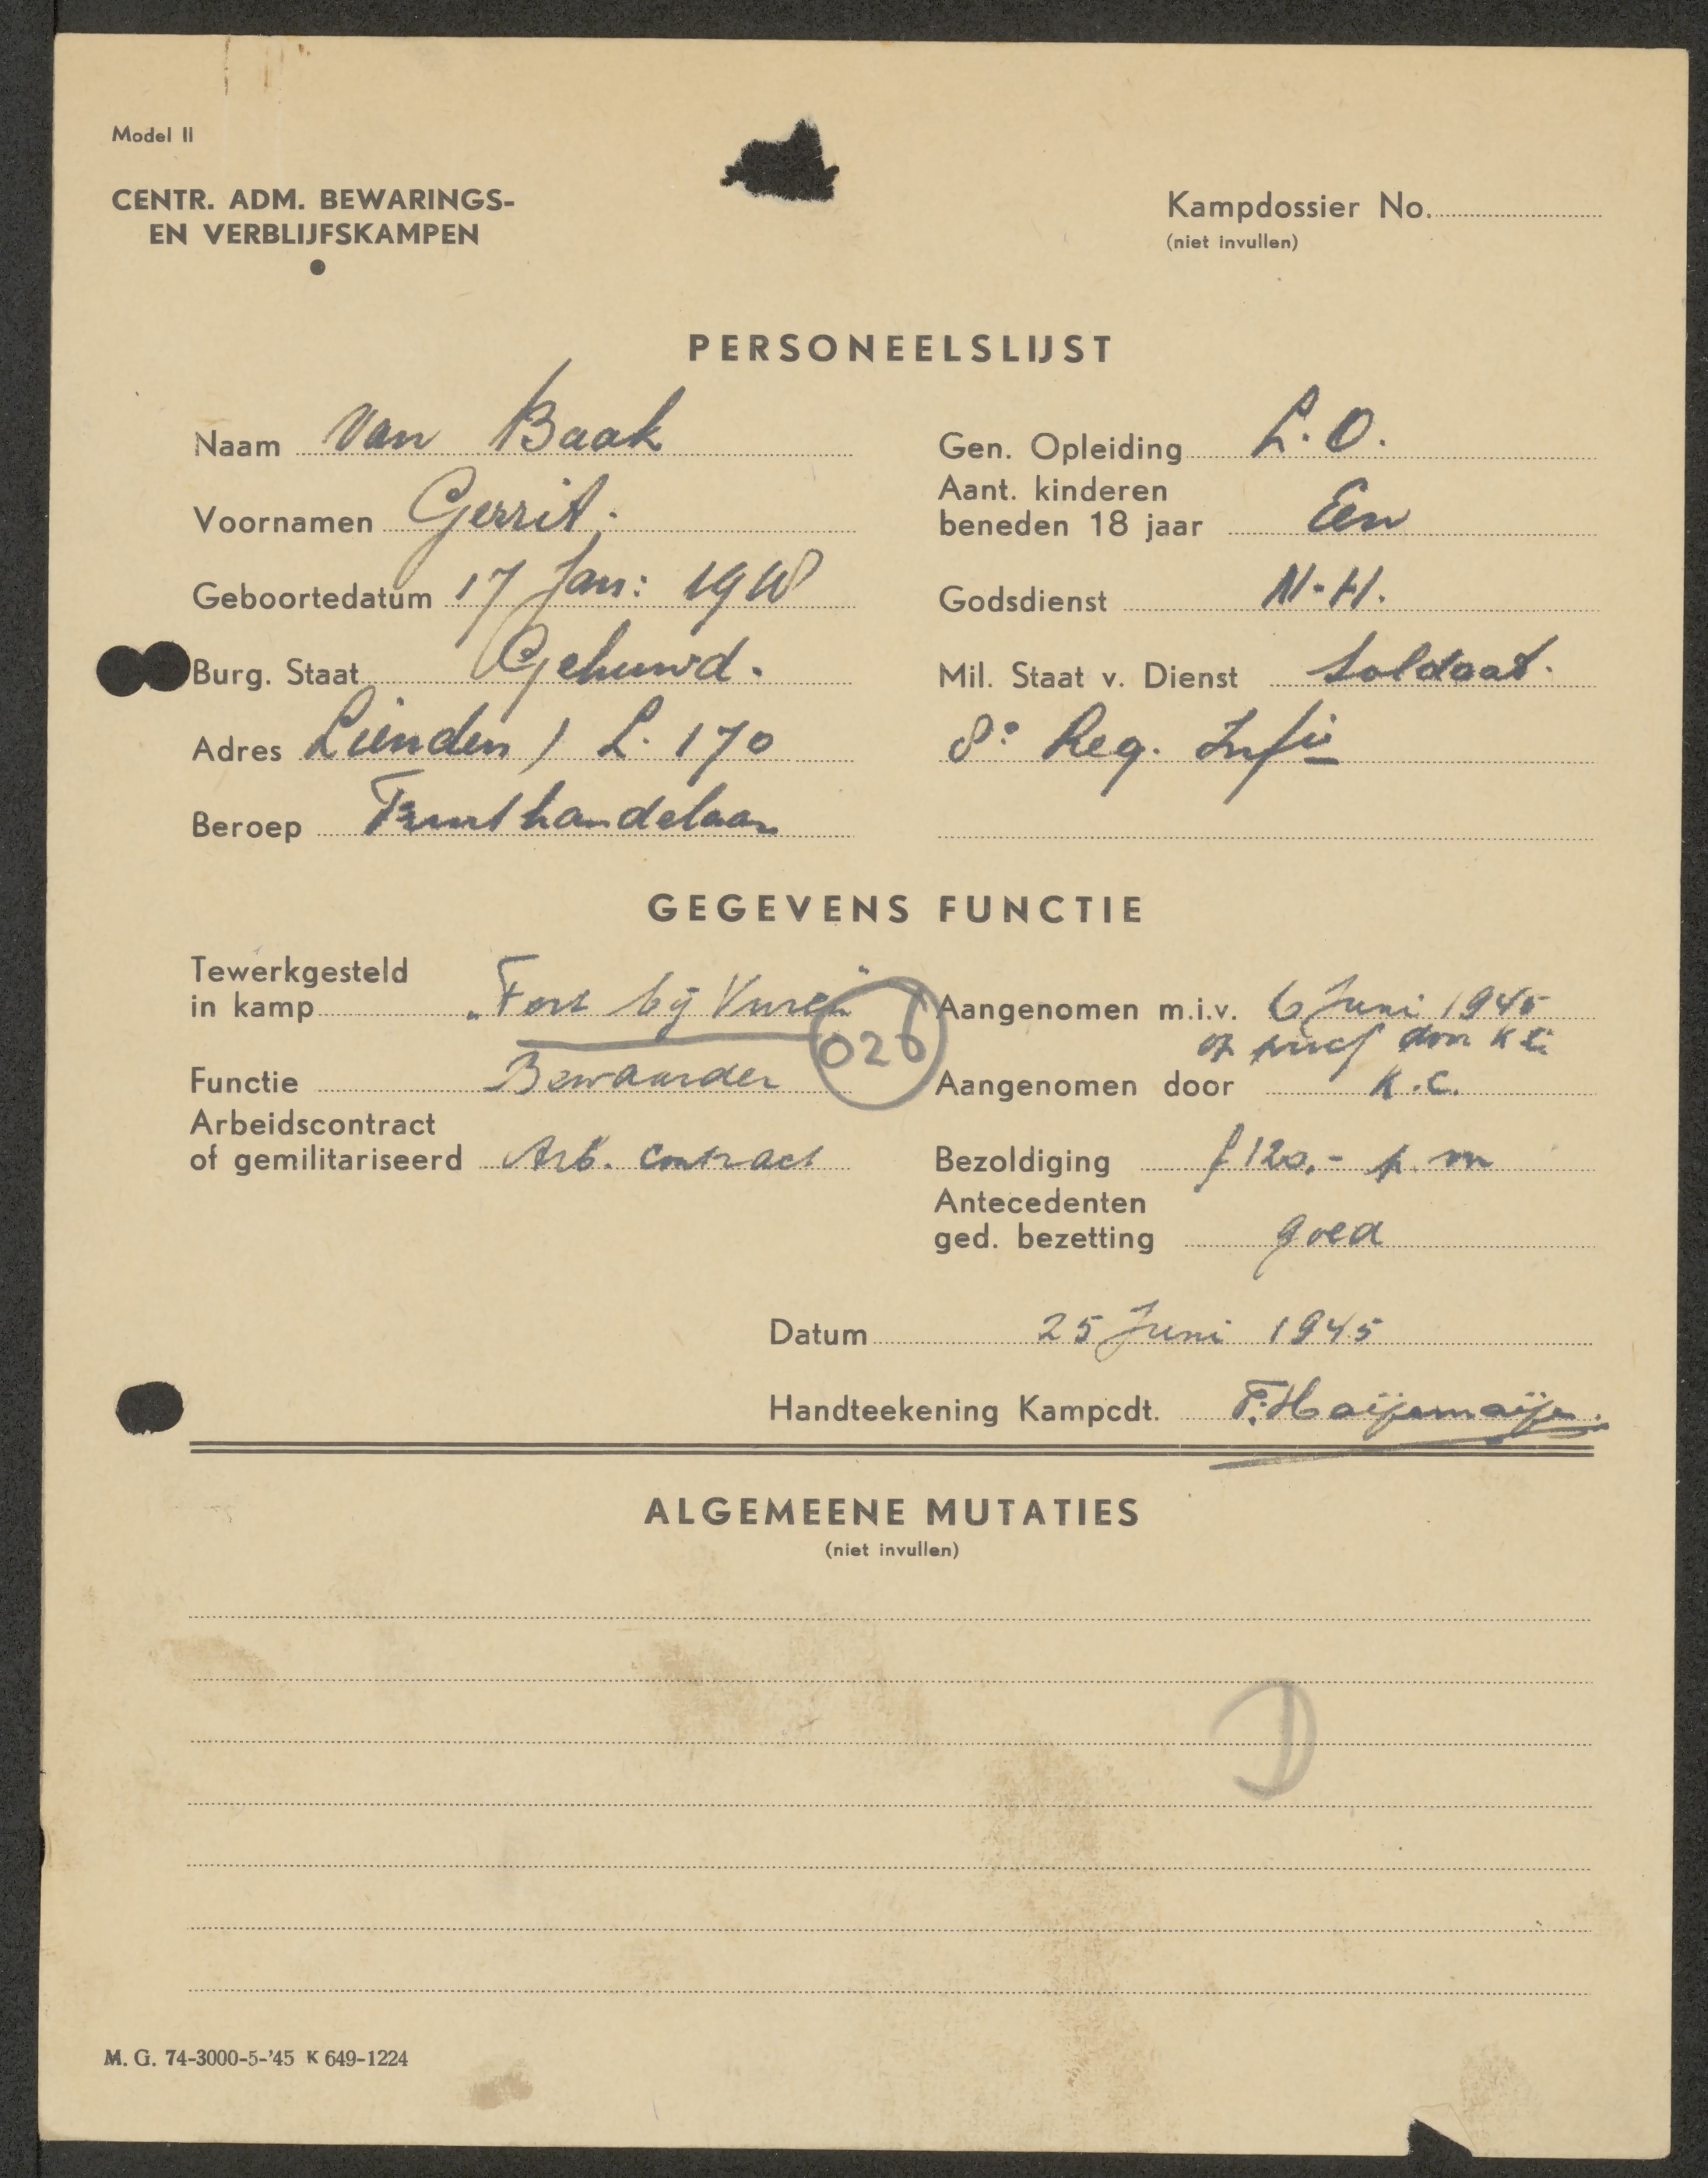 Model II
CENTR. ADM. BEWARINGS-
EN VERBLIJFSKAMPEN
Kampdossier No.
(niet invullen)
PERSONEELSLIJST
Naam Van Baak
Voornamen Gerrit.
Geboortedatum 17 Jan: 1918
Burg. Staat Gehuwd.
Adres Lienden / L. 170
Beroep Fruithandelaar
Gen. Opleiding L.O.
Aant. kinderen
beneden 18 jaar Een
Godsdienst N-H.
Mil. Staat v. Dienst Soldaat.
8e Reg. Infie
GEGEVENS FUNCTIE
Tewerkgesteld
in kamp „Fort bij Vuren"
026
Functie Bewaarder
Arbeidscontract
of gemilitariseerd Arb. Contract
Aangenomen m.i.v. 6 Juni 1945
op proef door
Aangenomen door K.C.
Bezoldiging f 120,- p. m
Antecedenten
ged. bezetting goed
Datum 25 Juni 1945
Handteekening Kampcdt.
ALGEMEENE MUTATIES
(niet invullen)
D
M. G. 74-3000-5-'45 K 649-1224